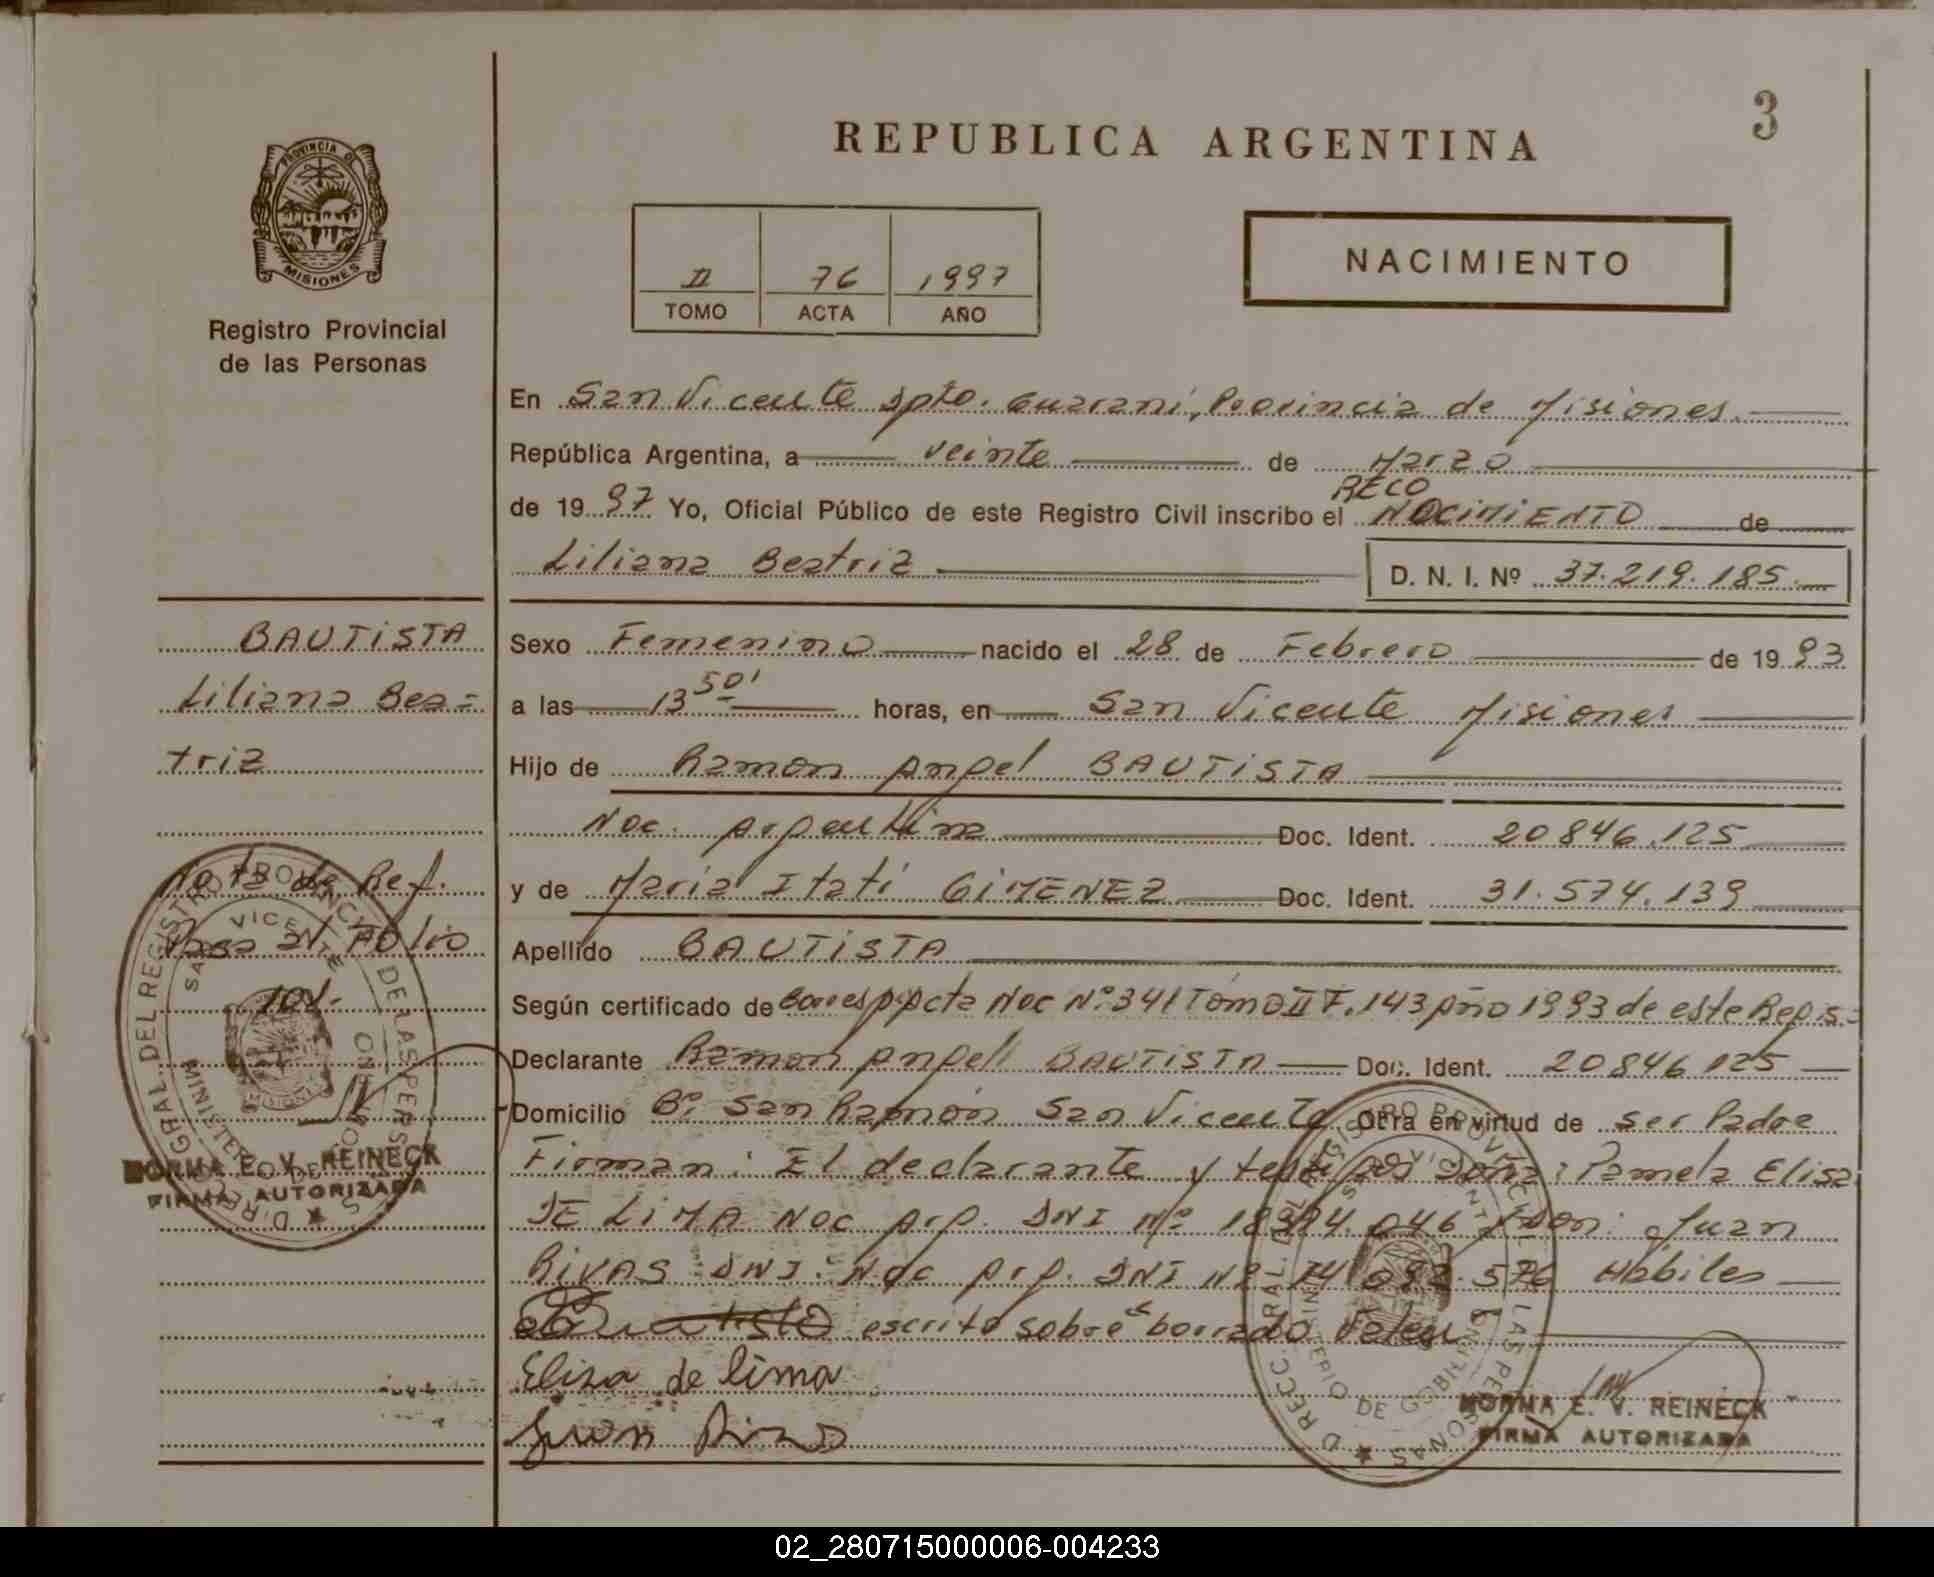 3
REPUBLICA ARGENTINA
PROVINCIA DE
MISIONES
Registro Provincial
de las Personas
II 76 1997
TOMO ACTA AÑO
NACIMIENTO
En San Vicente Dpto. Guarani, Provincia de Misiones.
República Argentina, a veinte de Marzo
de 1997 Yo, Oficial Público de este Registro Civil inscribo el RECO NOCIMIENTO de
Liliana Beatriz D. N. I. Nº 37.219.185.
BAUTISTA
Liliana Bea=
triz
Nota de Ref.
Pasa al Folio
101.
NORMA E. V. REINECK
FIRMA AUTORIZADA
Sexo Femenino nacido el 28 de Febrero de 1993
a las 13 50' horas, en San Vicente Misiones
Hijo de Ramon Angel BAUTISTA
Nac. Argentina Doc. Ident. 20846.125
y de Maria Itatí GIMENEZ Doc. Ident. 31.574.139
Apellido BAUTISTA
Según certificado de Corresp Acta Nac Nº 341 Tomo II F. 143 Año 1993 de este Regis=
Declarante Ramon Angel BAUTISTA Doc. Ident. 20846 125
Domicilio Bº San Ramón San Vicente Otra en virtud de ser Padre
Firman: El declarante y testigos Doña: Pamela Elisa
DE LIMA Nac Arg. DNI Nº Don: Juan
RIVAS DNI. Nac Arg. DNI Nº 576 Hábiles
escrito sobre borrado Valen
Elisa de lima
Juan Rivas
NORMA E. V. REINECK
FIRMA AUTORIZADA
02_280715000006-004233